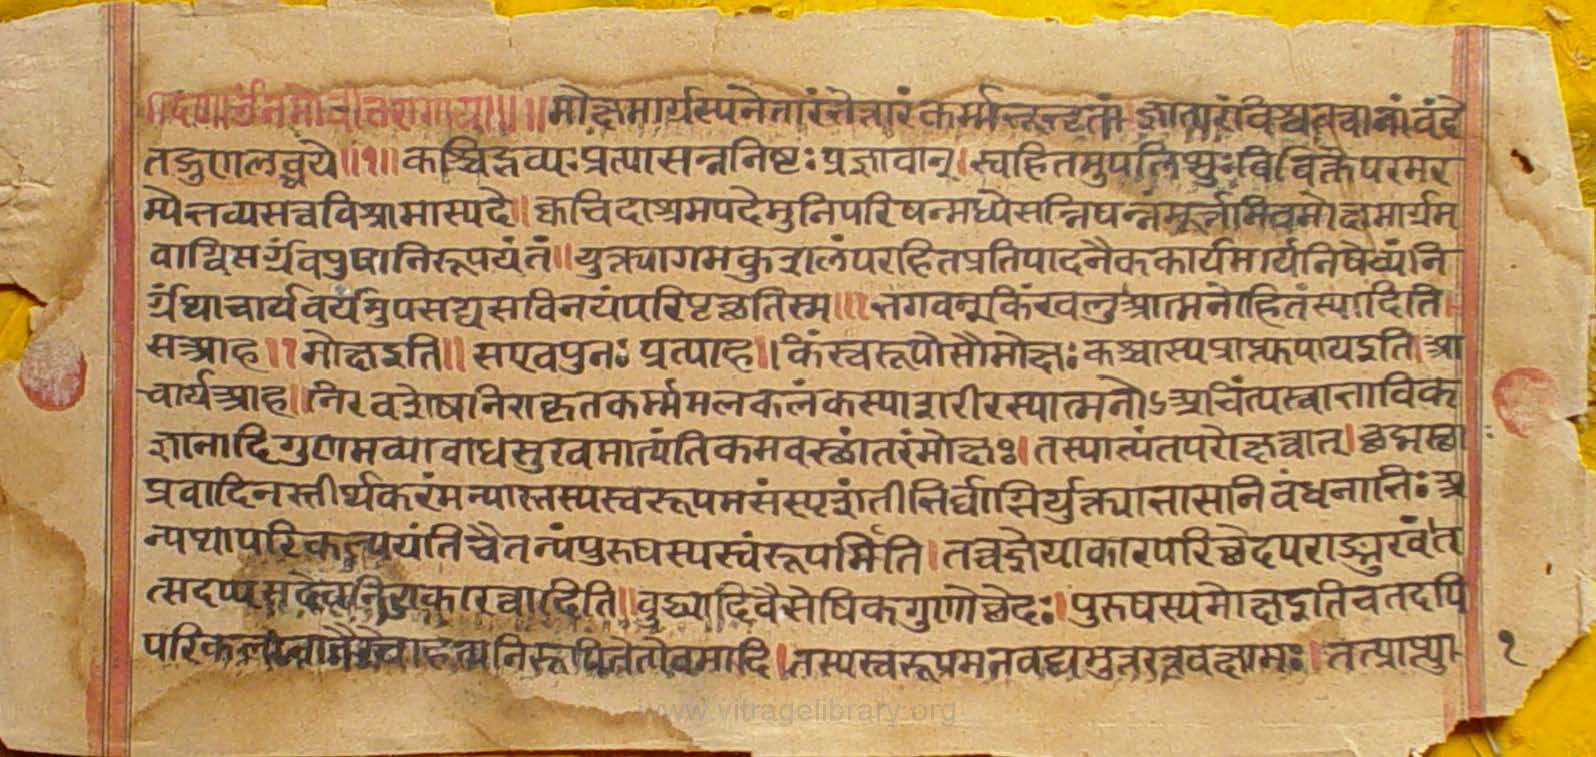 ॥ ॥मोक्षमार्गस्यनेतारंभेत्तारंकर्म्मभूभृतां।ज्ञातारंविश्वतत्वानांवंदे
तद्गुणलब्धये॥१॥कश्चिद्भव्यःप्रत्यासन्ननिष्टःप्रज्ञावान्।स्वहितमुपलिप्सुःविविक्तेपरमर
म्येभव्यसत्वविश्रामास्पदे॥क्वचिदाश्रमपदेमुनिपरिषन्मध्येसन्निषन्नंमूर्त्तमिवमोक्षमार्गम
वाग्विसर्गंवपुषानिरूपयंतं॥युक्त्यागमकुशलंपरहितप्रतिपादनैककार्यमार्यनिषेव्यंनि
र्ग्रंथाचार्यवर्यमुपसद्यसविनयंपरिपृच्छतिस्म॥भगवन्किंखलुआत्मनेहितंस्यादिति।
सआह॥मोक्षइति॥सएवपुनःप्रत्याह॥किंस्वरूपोसौमोक्षःकश्चास्यप्राप्त्युपायइति।आ
चार्यआह॥निरवशेषनिराकृतकर्म्ममलकलंकस्याशरीरस्यात्मनोऽअचिंत्यस्वाभाविक
ज्ञानादिगुणमव्यावाधसुखमात्यंतिकमवस्थांतरंमोक्षः।तस्यात्यंतपरोक्षत्वात्।छद्मस्था
प्रवादिनस्तीर्थकरंमन्यास्तस्यस्वरूपमसंस्पृशंतीभिर्वाग्भिर्युक्त्याभासनिवंधनाभिःअ
न्यथापरिकल्पयंतिचैतन्यंपुरुषस्यस्वंरूपमिति।तच्चज्ञेयाकारपरिच्छेदपराङ्मुखंत
त्सदप्यसदेवनिराकारत्वादिति॥वुद्ध्यादिवैसेषिकगुणोच्छेदः।पुरुषस्यमोक्षइतिचतदपि
तस्यस्वरूपमनवद्यमुत्तरत्रवक्ष्यामः।तत्प्राप्त्यु
१
www.vitragelibrary.org